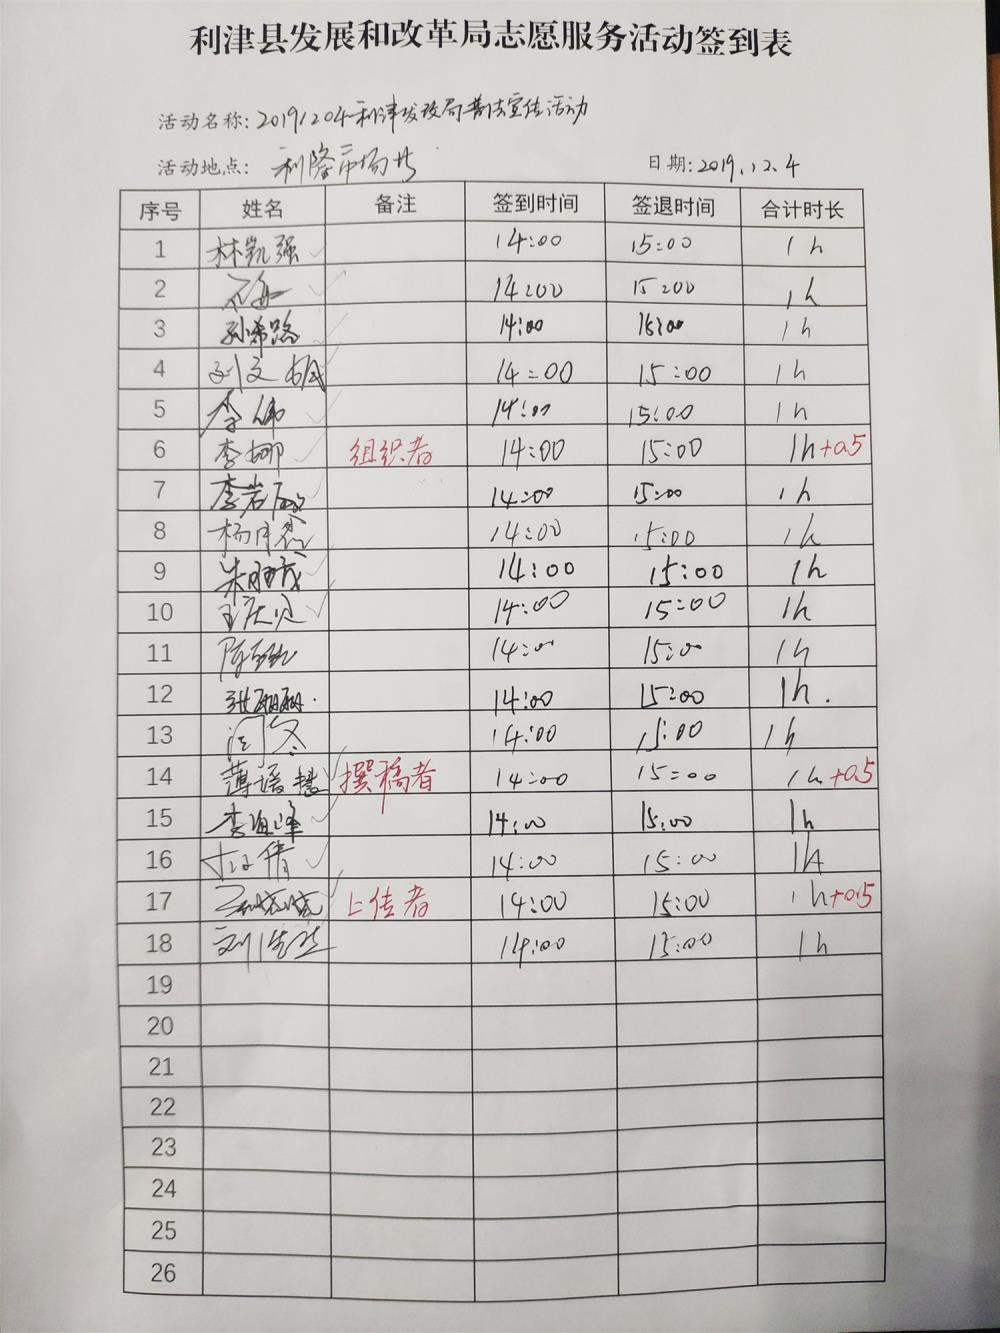 利津县发展和改革局志愿服务活动签到表
活动名称: 20191204利津发改局普法宣传活动
活动地点: 利隆市场北
日期: 2019.12.4
序号 姓名 备注 签到时间 签退时间 合计时长
1 林凯强 14:00 15:00 1h
2 14:00 15:00 1h
3 孙希路 14:00 15:00 1h
4 刘文明 14:00 15:00 1h
5 李伟 14:00 15:00 1h
6 李娜 组织者 14:00 15:00 1h+0.5
7 李岩 14:00 15:00 1h
8 杨月 14:00 15:00 1h
9 朱 14:00 15:00 1h
10 王庆 14:00 15:00 1h
11 14:00 15:00 1h
12 张丽丽. 14:00 15:00 1h.
13 闫冬 14:00 15:00 1h
14 薄 慧 撰稿者 14:00 15:00 1h+0.5
15 李海峰 14:00 15:00 1h
16 倩 14:00 15:00 1h
17 上传者 14:00 15:00 1h+0.5
18 刘 14:00 15:00 1h
19
20
21
22
23
24
25
26